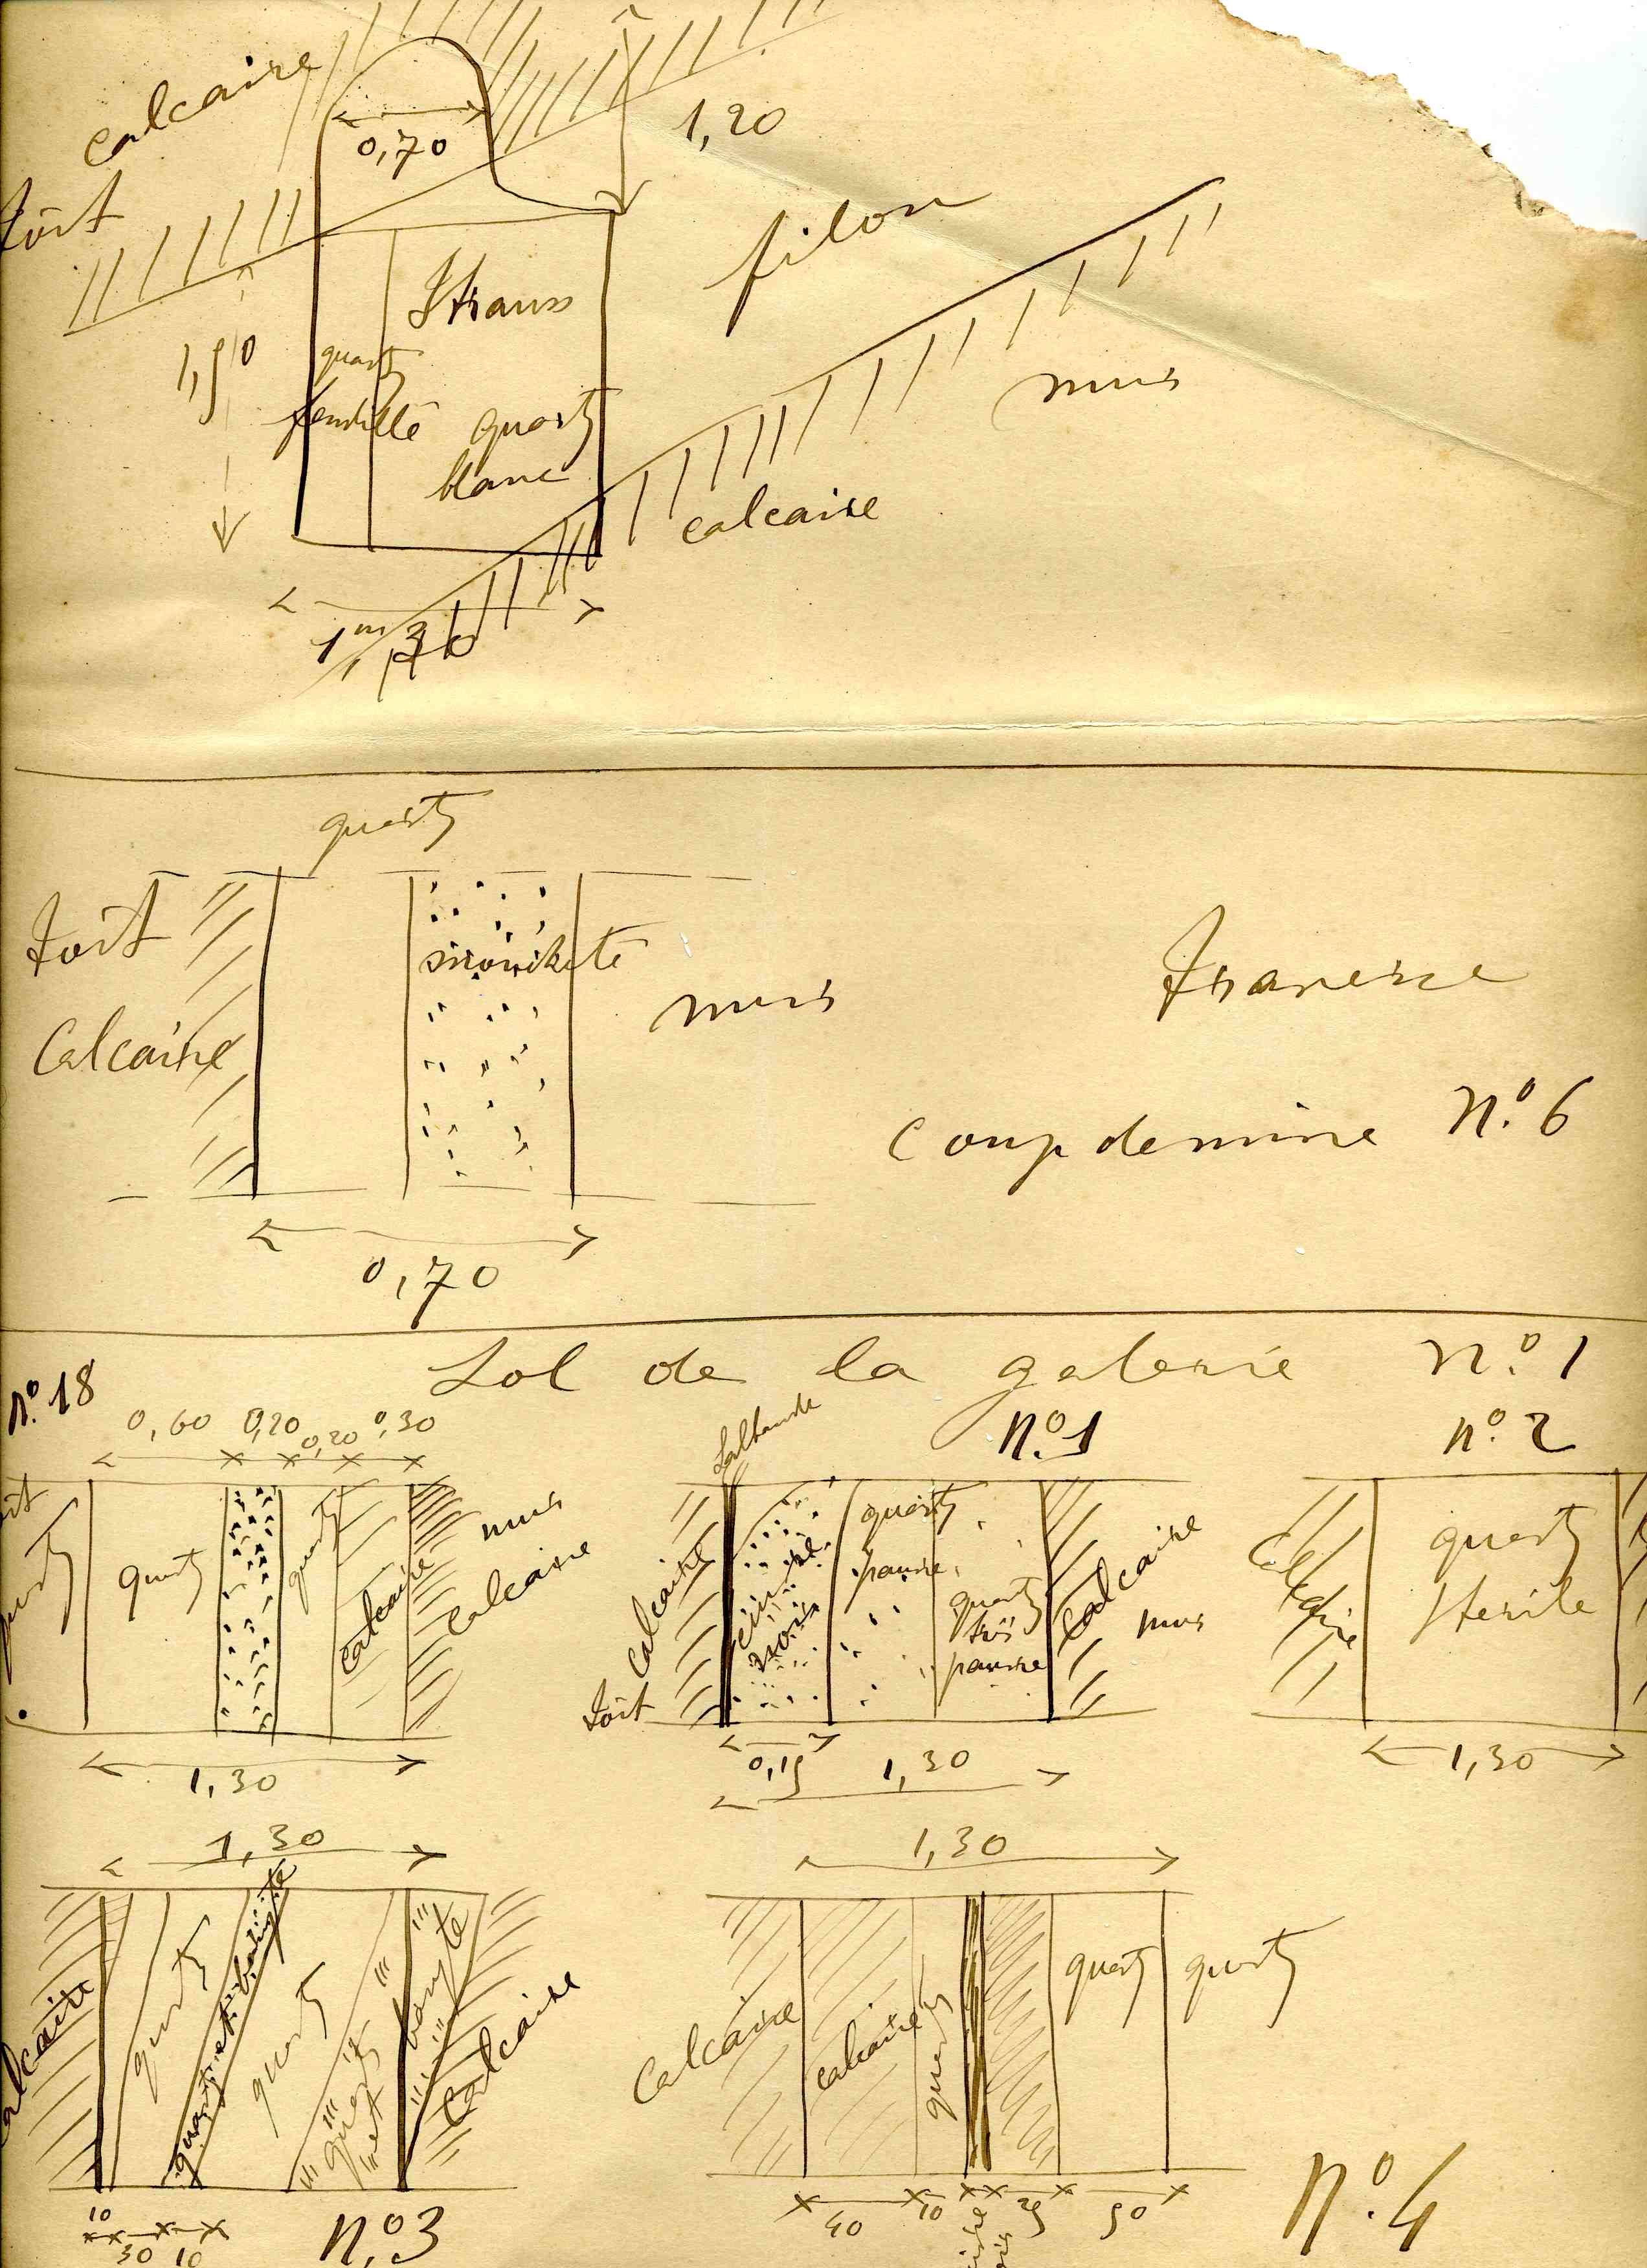 calcaire
toit
0,70
1,20
filon
Strauss
1,50
quartz
fendillé
quartz
blanc
mur
calcaire
1m,30
quartz
toit
Calcaire
mur
Traverse
Coup de mine N.º 6
0,70
Sol de la galerie N.º 1
N.º 18
0,60 0,20 0,20 0,30
quartz
quartz
quartz
calcaire
mur
calcaire
1,30
N.º 1
Salbande
toit
calcaire
noir
quartz
pauvre
quartz
très
pauvre
Calcaire
mur
0,15
1,30
N.º 2
Calcaire
quartz
sterile
1,30
1,30
calcaire
quartz
quartz et
quartz
quartz
et baryte
Calcaire
10
30 10
N.º 3
1,30
Calcaire
calcaire
quartz
quartz
quartz
40 10 25 50
N.º 4